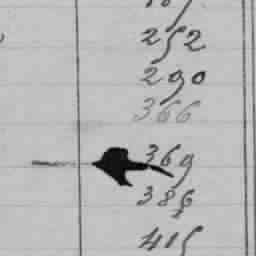 252
290
366
369
386
415